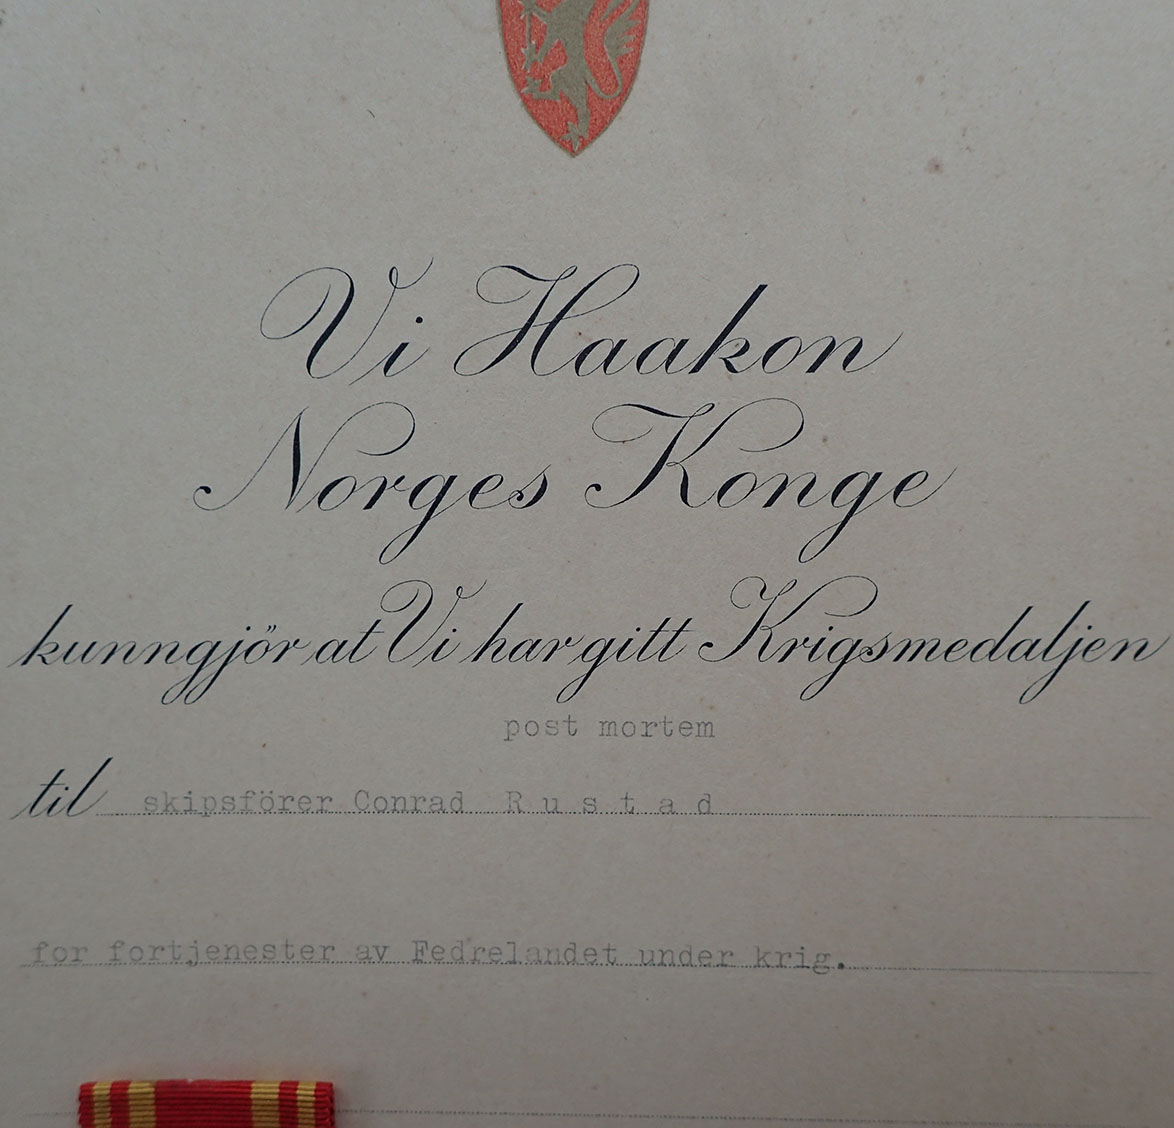 Vi Haakon
Norges Konge
kunngjör at Vi har gitt Krigsmedaljen
post mortem
til skipsförer Conrad R u s t a d
for fortjenester av Fedrelandet under krig.